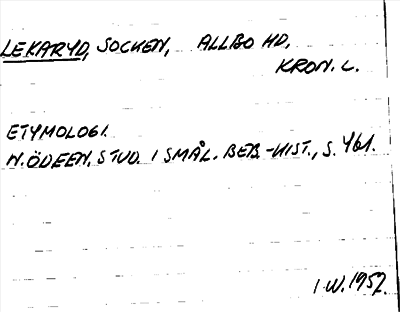 LEKARYD, SOCKEN, ALLBO HD,
KRON. L.
ETYMOLOGI.
N. ÖDEEN, STUD. I SMÅL. BEB.-HIST., S. 461.
I.W. 1957.